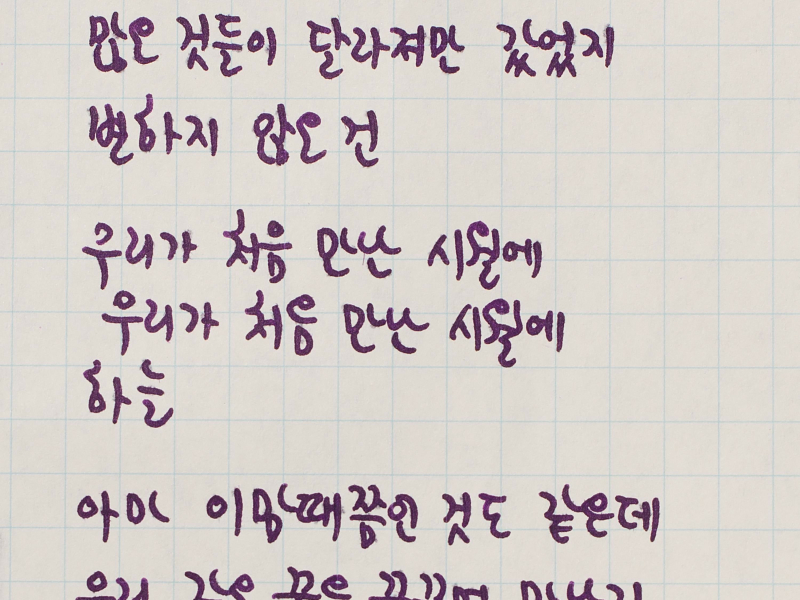 많은 것들이 달라져만 갔었지
변하지 않은 건
우리가 처음 만난 시월에
우리가 처음 만난 시월에
하늘
아마 이맘때쯤인 것도 같은데
우리 같은 꿈을 꿈꾸며 만났지